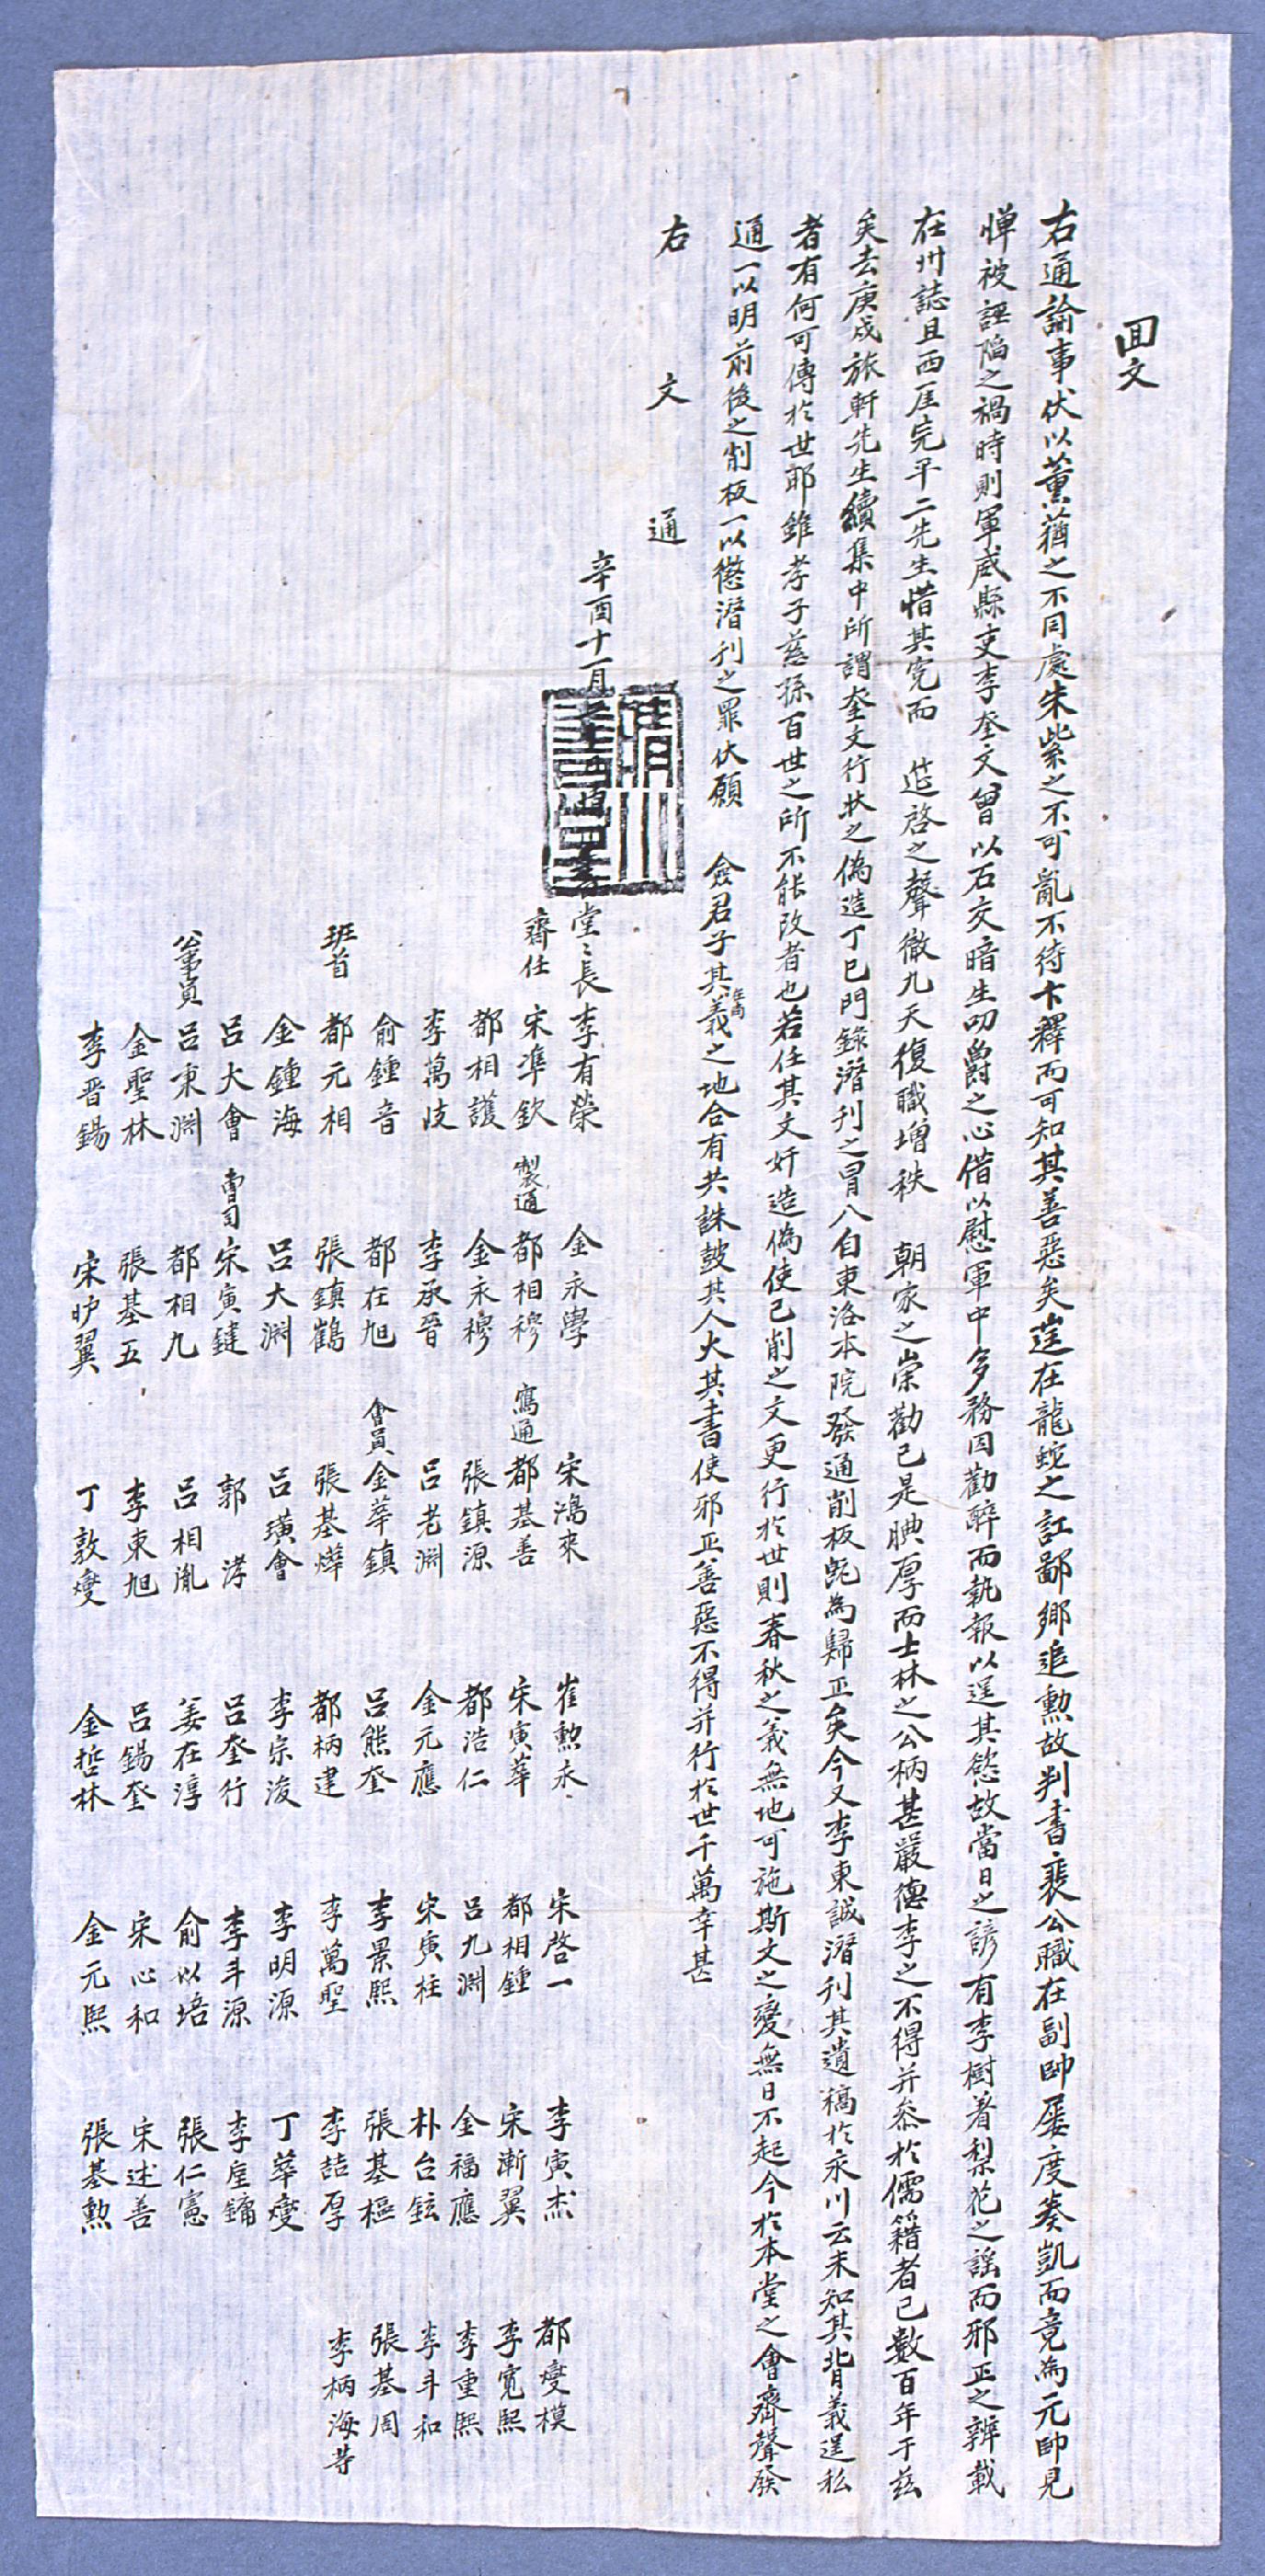 回文
右通諭事伏以薰蕕之不同處朱紫之不可亂不待卞釋而可知其善惡矣逬在龍蛇之訌鄙鄕追勳故判書裵公職在副帥屢度奏凱而竟爲元帥見
憚被誣陷之禍時則軍威縣吏李奎文曾以石交暗生叨爵之心借以慰軍中多務因勸醉而執報以逞其慾故當日之諺有李樹着梨花之謠而邪正之辨載
在州誌且西厓完平二先生惜其寃而 筵啓之聲徹九天復職增秩 朝家之崇勸已是腆厚而士林之公柄甚嚴德李之不得幷叅於儒籍者已數百年于玆
矣去庚戌旅軒先生續集中所謂奎文行狀之僞造丁巳門錄潛刊之冒入自東洛本院發通削板旣爲歸正矣今又李東誠潛刊其遺稿於永川云未知其背義逞私
者有何可傳於世耶雖孝子慈孫百世之所不能改者也若任其文奸造僞使已削之文更行於世則春秋之義無地可施斯文之變無日不起今於本堂之會齊聲發
通一以明前後之削板一以懲潛刊之罪伏願 僉君子其義在尙之地合有共誅鼓其人火其書使邪正善惡不得幷行於世千萬幸甚
右 文 通
辛酉十一月 堂長 李有榮 金永學 宋鴻來 崔勳永 宋啓一 李寅杰 都燮模
齋任 宋準欽 製通 都相穆 寫通 都基善 宋寅華 都相鍾 宋漸翼 李寬熙
都相護 金永穆 張鎭源 都浩仁 呂九淵 金福應 李重熙
李萬岐 李承晉 呂老淵 金元應 宋寅柱 朴台鉉 李斗和
兪鍾音 都在旭 會員 金華鎭 呂熊奎 李景熙 張基樞 張基周
班首 都元相 張鎭鶴 張基燁 都柄建 李萬聖 李喆厚 李柄海等
金鍾海 呂大淵 呂璜會 李宗浚 李明源 丁華燮
呂大會 曺司 宋寅鍵 郭 涍 呂奎行 李斗源 李座鏞
公事員 呂東淵 都相九 呂相胤 姜在淳 兪以培 張仁憲
金聖林 張基五 李東旭 呂錫奎 宋心和 宋述善
李晋錫 宋昈翼 丁敦燮 金哲林 金元熙 張基勳
晴川書堂